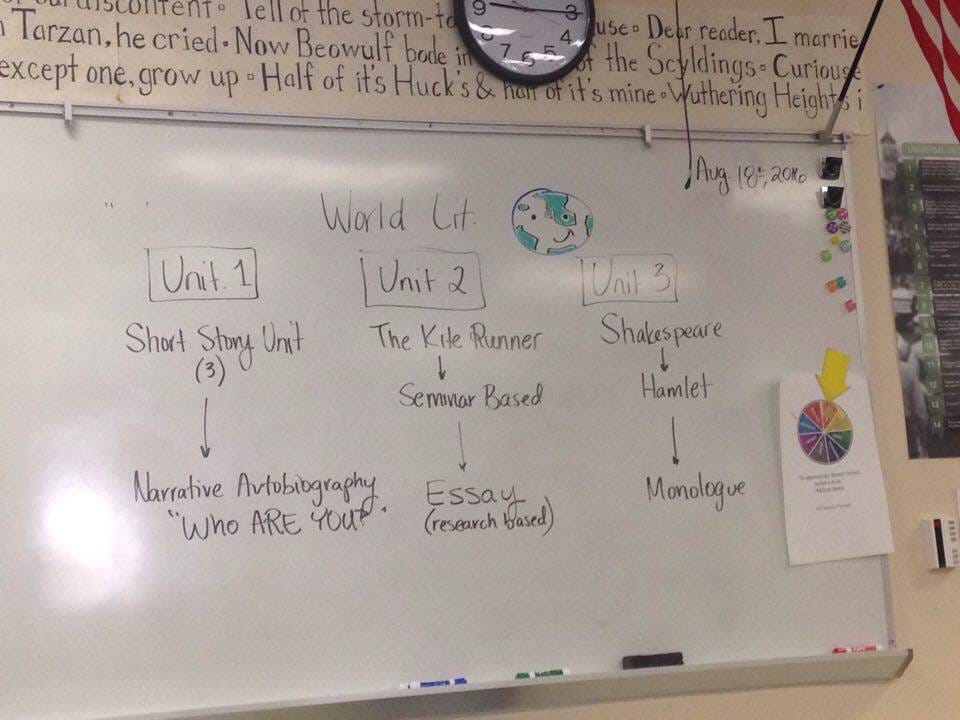 discontent • Tell of the storm-to
Tarzan, he cried • Now Beowulf bode in
use • Dear reader, I marrie
except one, grow up • Half of it's Huck's & half of it's mine • Wuthering Heights i
the Scyldings • Curiouse
9 3
8 4
7 6 5
Aug. 18th, 2016
World Lit.
Unit 1
Unit 2
Unit 3
Short Story Unit
(3)
The Kite Runner
Shakespeare
Seminar Based
Hamlet
Narrative Autobiography
"WHO ARE YOU?"
Essay
(research based)
Monologue
1
2
3
4
5
6
7
8
9
10
11
12
13
14